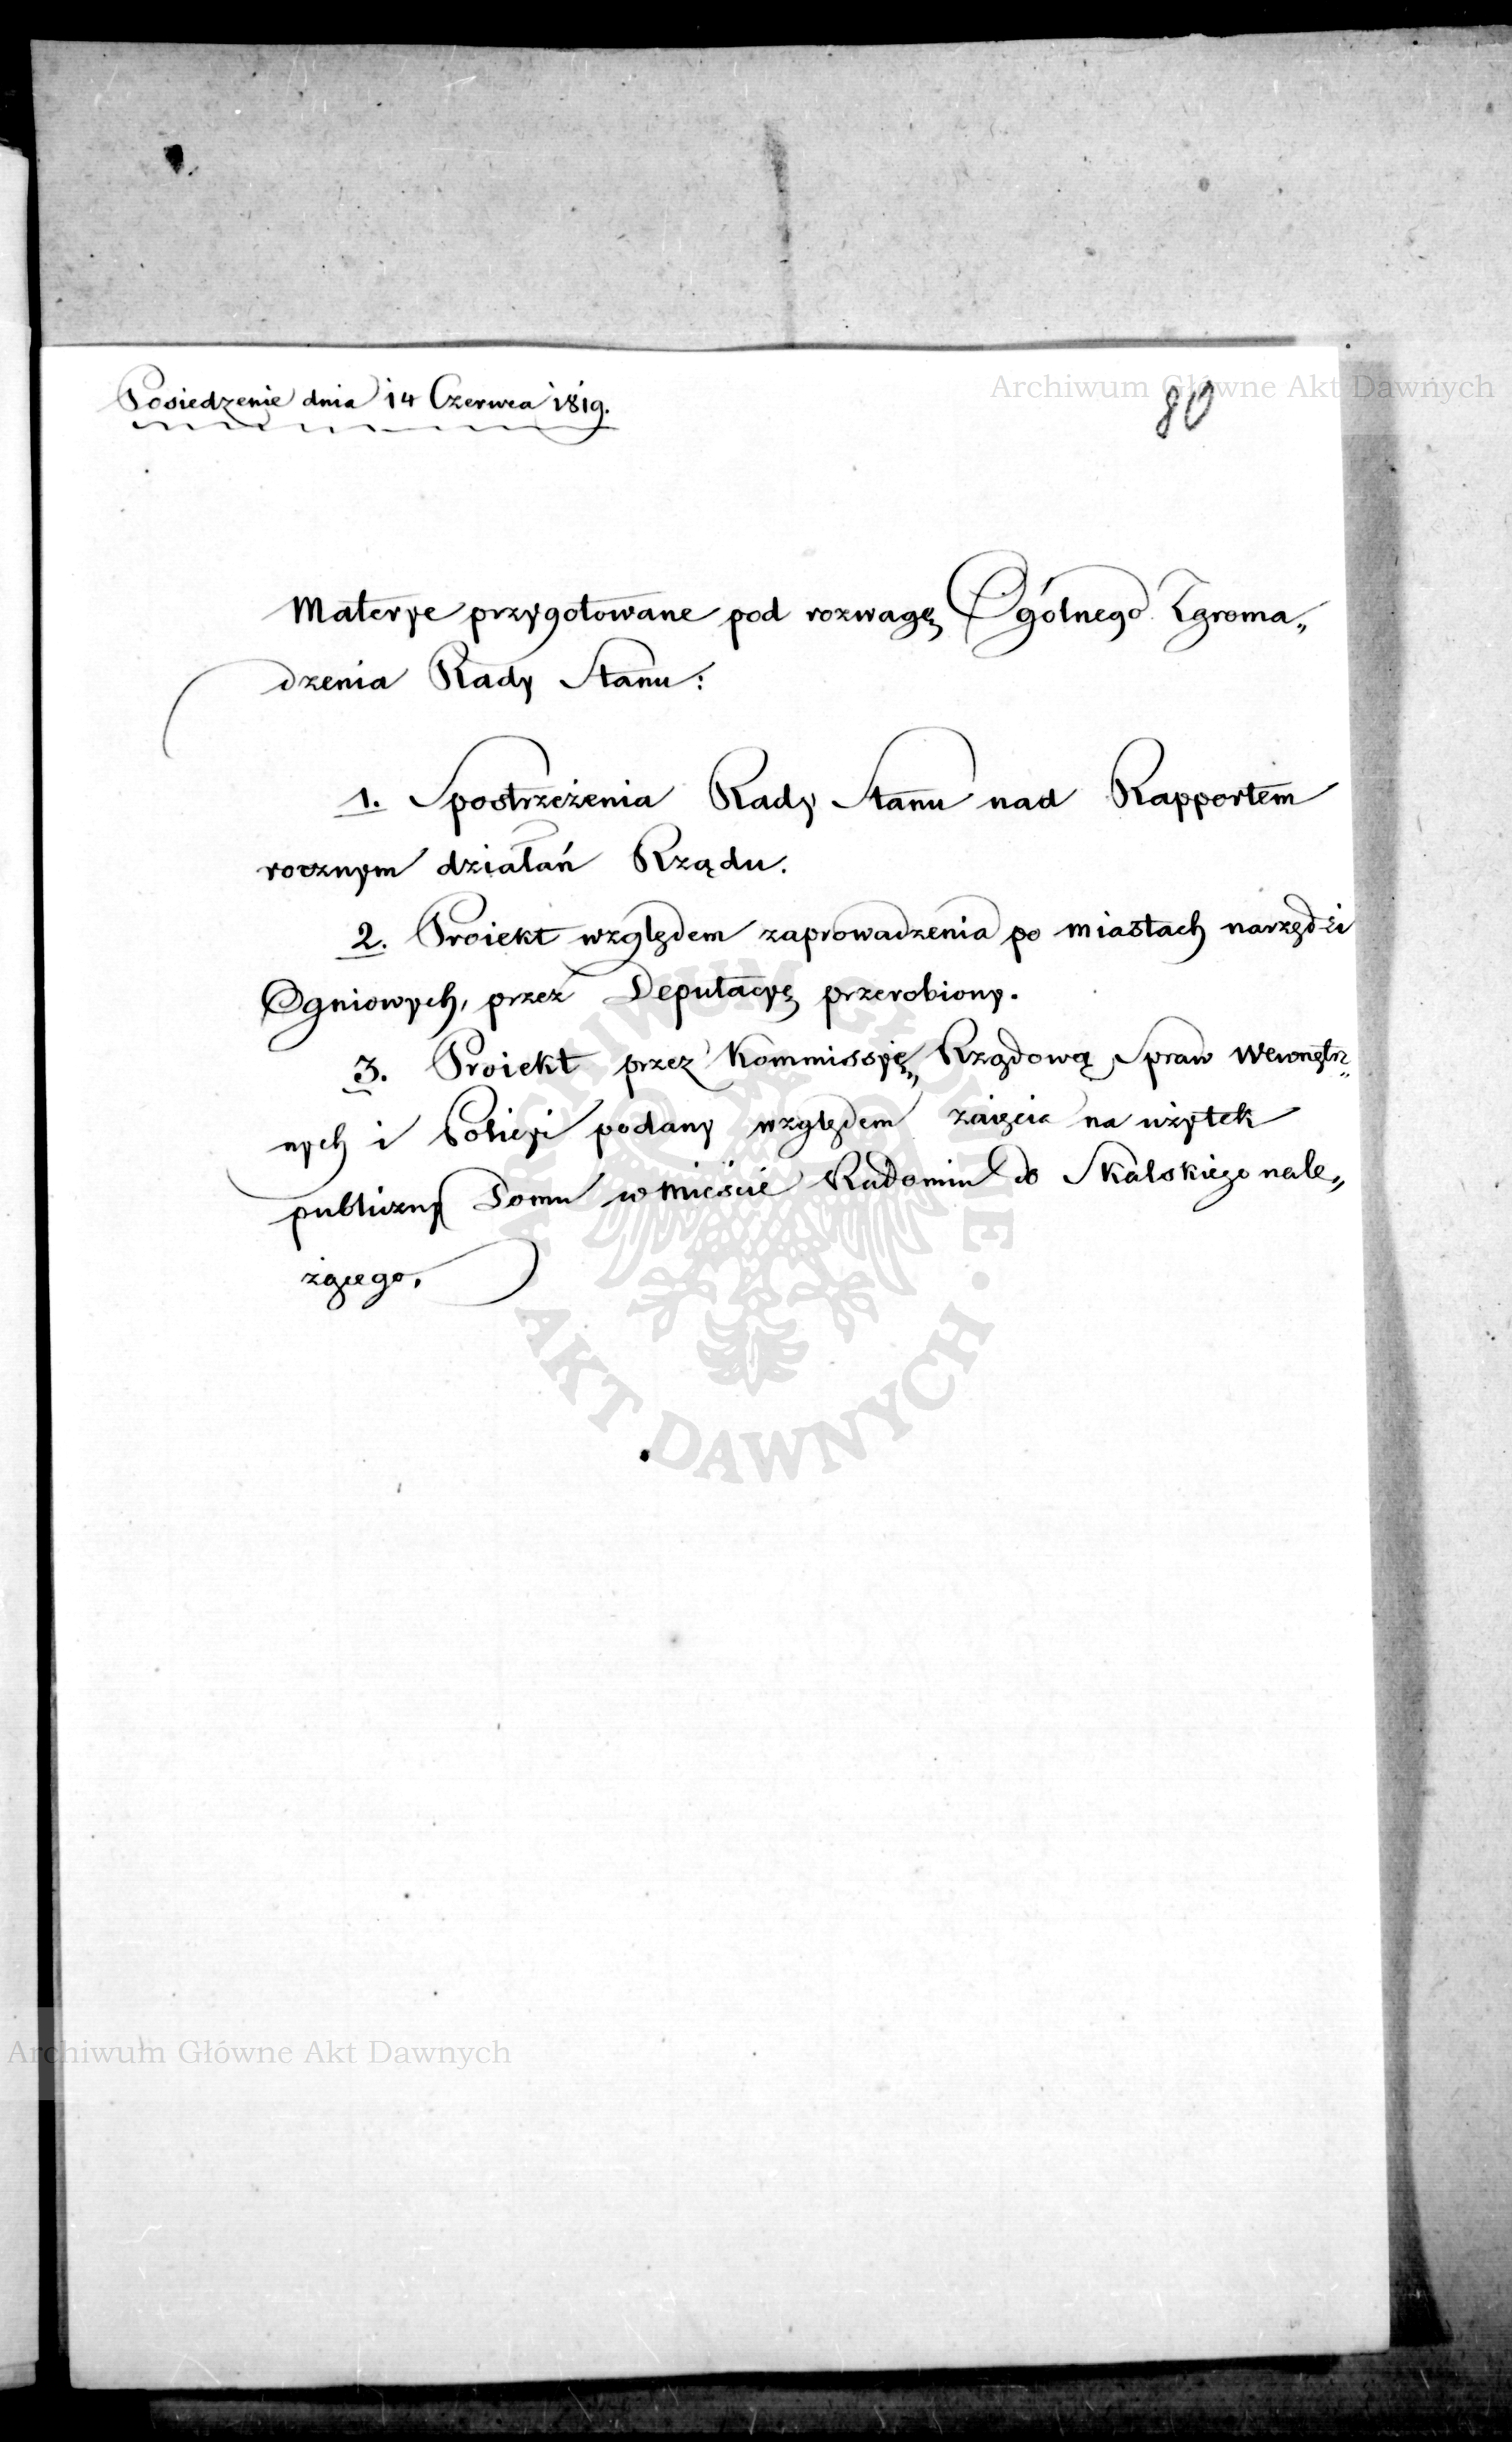 Posiedzenie dnia 14 Czerwca 1819.
80
Materye przygotowane pod rozwagę Ogólnego Zgroma„
dzenia Rady Stanu:
1. Spostrzeżenia Rady Stanu nad Rapportem
rocznym działań Rządu.
2. Proiekt względem zaprowadzenia po miastach narzędzi
Ogniowych, przez Deputacyę przerobiony.
3. Proiekt przez Kommissyę Rządową Spraw Wewnętrz„
nych i Policyi podany względem zaięcia na użytek
publiczny Domu w mieście Radomiu do Skalskiego nale„
żącego.
Archiwum Główne Akt Dawnych
ARCHIWUM GŁÓWNE • AKT DAWNYCH •
Archiwum Główne Akt Dawnych